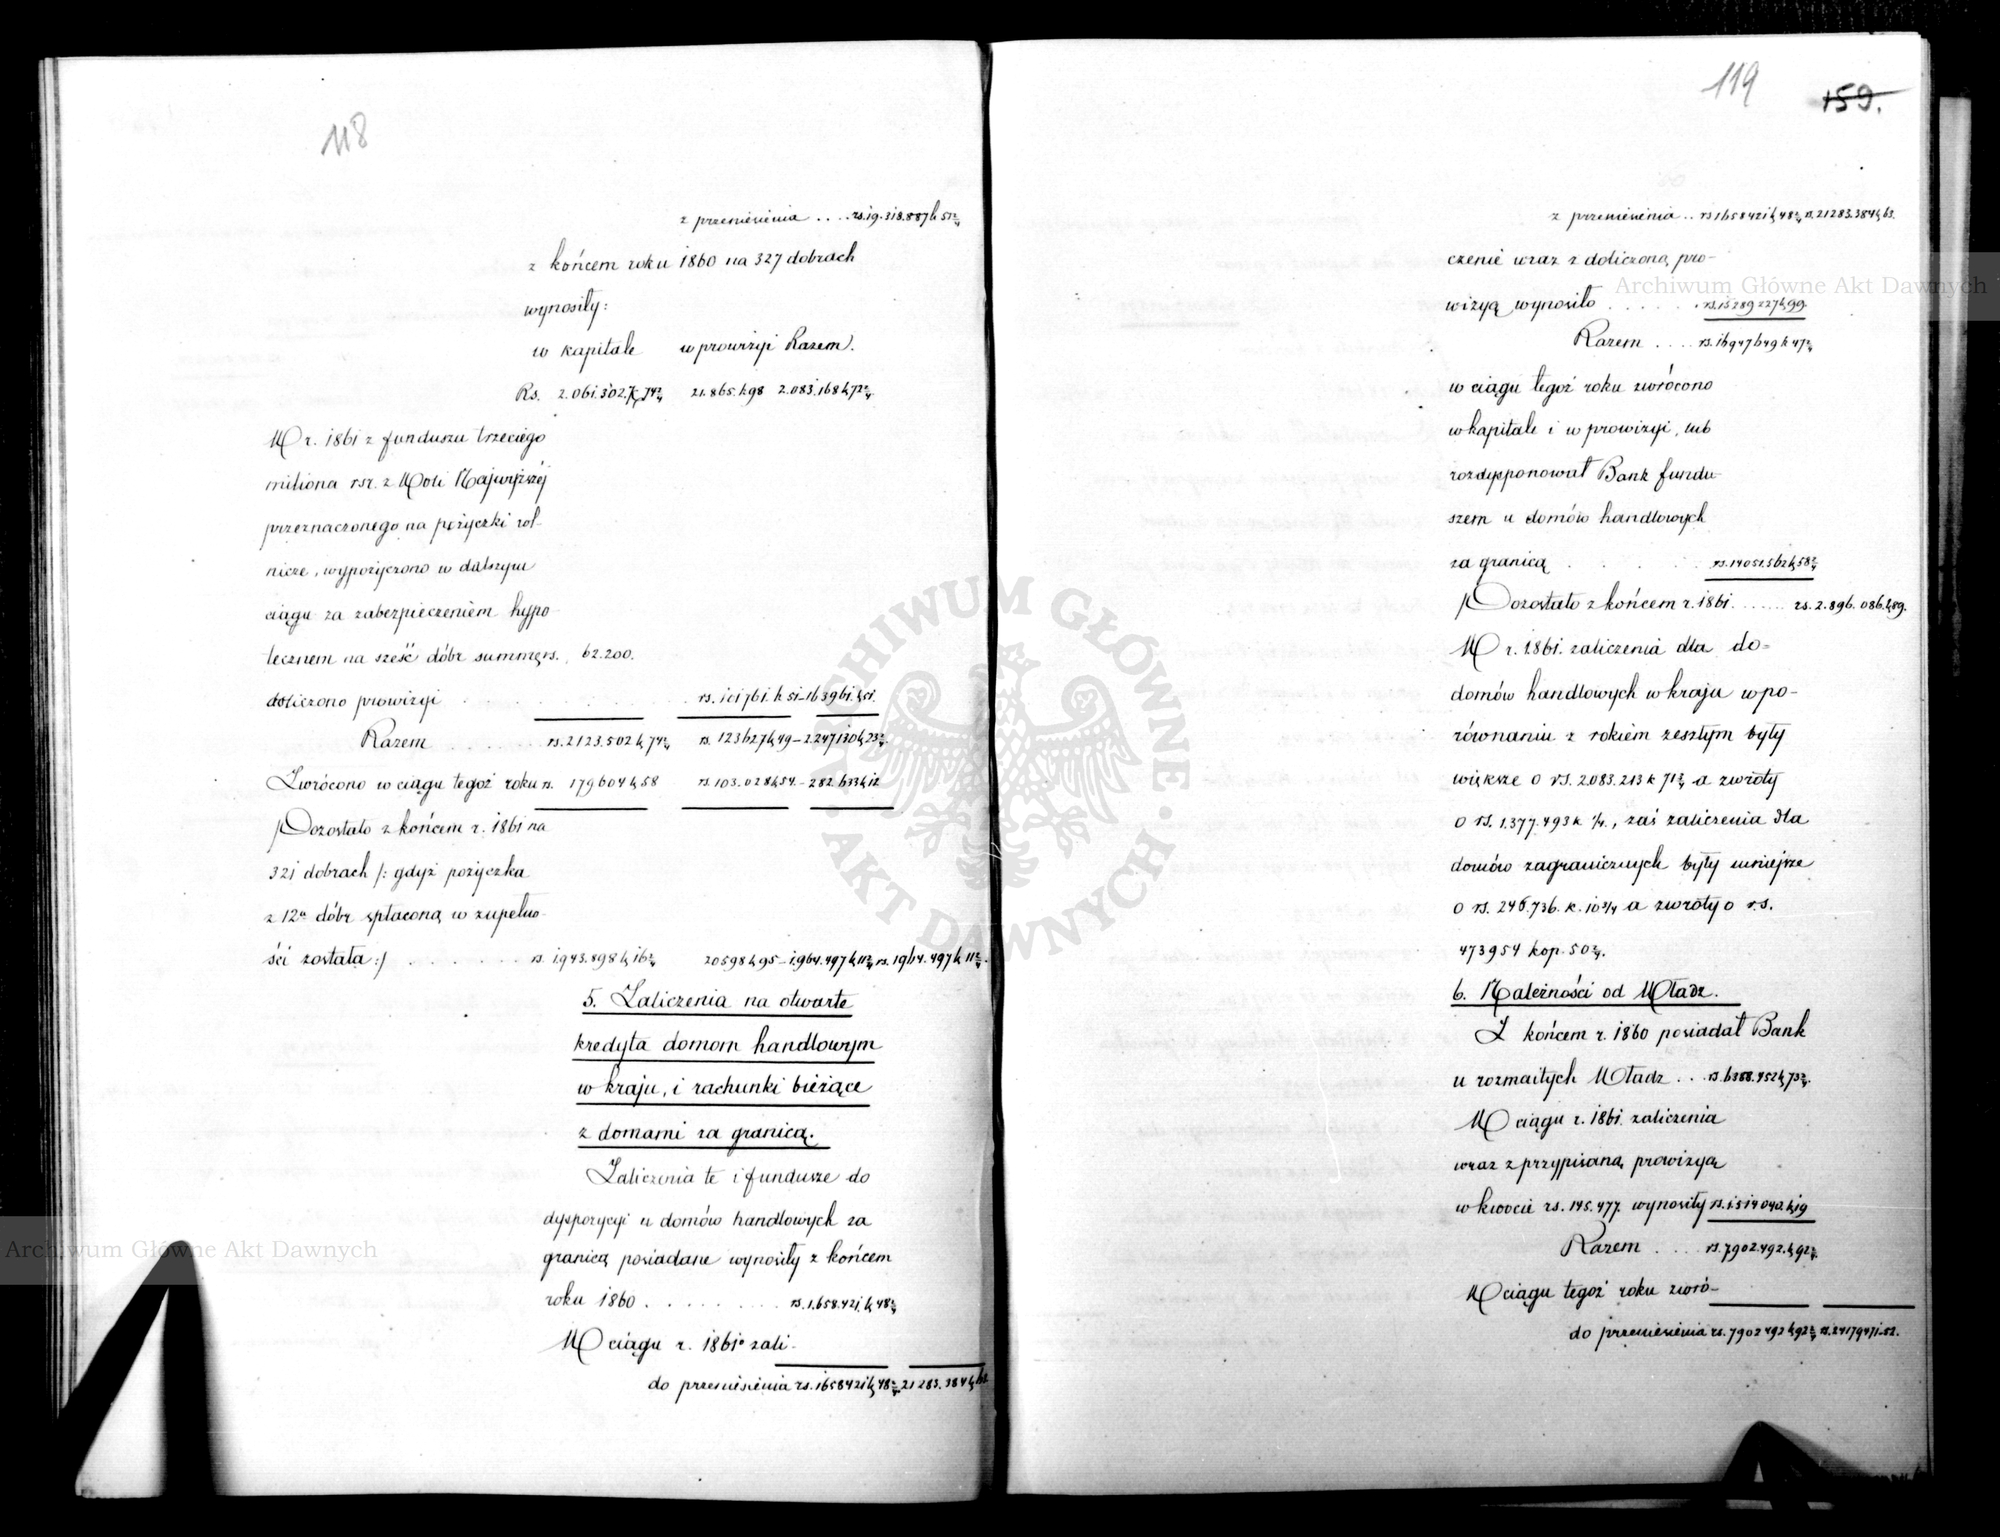 118
z przeniesienia . . . . rs. 19.318.887 k 51 2/4
z końcem roku 1860 na 327 dobrach
wynosiły:
w kapitale w prowizyi Razem.
Rs. 2.061.302. k. 74 2/4 21.865. k 98 2.083.168 k 72 2/4
W r. 1861 z funduszu trzeciego
miliona rsr. z Woli Najwyższéj
przeznaczonego na pożyczki rol-
nicze, wypożyczono w dalszym
ciągu za zabezpieczeniem hypo-
tecznem na sześć dóbr summę rs. 62.200.
doliczono prowizyi . . . . . . rs. 101761. k 51 – 163961. k 51.
Razem . . . . . rs. 2123.502 k 74 2/4 rs. 123627 k 49 – 2.247130 k 23 2/4.
Zwrócono w ciągu tegoż roku rs. 179604 k 58 rs. 103.028 k 54. – 282.633 k 12
Pozostało z końcem r. 1861 na
321 dobrach /: gdyż pożyczka
z 12u dóbr spłaconą w zupełno-
ści została :/ . . . . . . rs. 1.943.898 k 16 2/4 20598 k 95 – 1.964.497 k 11 2/4 rs. 1964.497 k 11 2/4.
5. Zaliczenia na otwarte
kredyta domom handlowym
w kraju, i rachunki bieżące
z domami za granicą.
Zaliczenia te i fundusze do
dyspozycyi u domów handlowych za
granicą posiadane wynosiły z końcem
roku 1860 . . . . . . . . rs. 1.658.421. k 48 2/4
W ciągu r. 1861o zali-
do przeniesienia rs. 1658421 k 48 2/4 21283.384 k 63
119
159.
z przeniesienia . . rs 1658421 k 48 2/4 rs. 21283.384 k 63.
czenie wraz z doliczoną pro-
wizyą wynosiło . . . . . . rs. 15289227 k 99.
Razem . . . . rs. 16947649 k 47 2/4
w ciągu tegoż roku zwrócono
w kapitale i w prowizyi, lub
rozdysponował Bank fundu-
szem u domów handlowych
za granicą . . . . . rs. 14051.562 k 58 2/4
Pozostało z końcem r. 1861. . . . . . . rs. 2.896.086. k 89.
W r. 1861. zaliczenia dla do=
domów handlowych w kraju w po-
równaniu z rokiem zeszłym były
większe o rs. 2.083.213 k 71 2/4 a zwroty
o rs. 1.377.493 k 1/4., zaś zaliczenia dla
domów zagranicznych były mniejsze
o rs. 246.736. k. 10 3/4 a zwroty o rs.
473954 kop. 50 2/4.
6. Należności od Władz.
Z końcem r. 1860 posiadał Bank
u rozmaitych Władz . . . rs. 6388.452 k 73 2/4.
W ciągu r. 1861. zaliczenia
wraz z przypisaną prowizyą
w kwocie rs. 145.477. wynosiły rs. 1.514040. k 19
Razem . . . . rs. 7902.492. k 92 2/4.
W ciągu tegoż roku zwró-
do przeniesienia rs. 7902492 k 92 2/4 rs. 24179471 – 52.
Archiwum Główne Akt Dawnych
Archiwum Główne Akt Dawnych
ARCHIWUM GŁÓWNE · AKT DAWNYCH ·